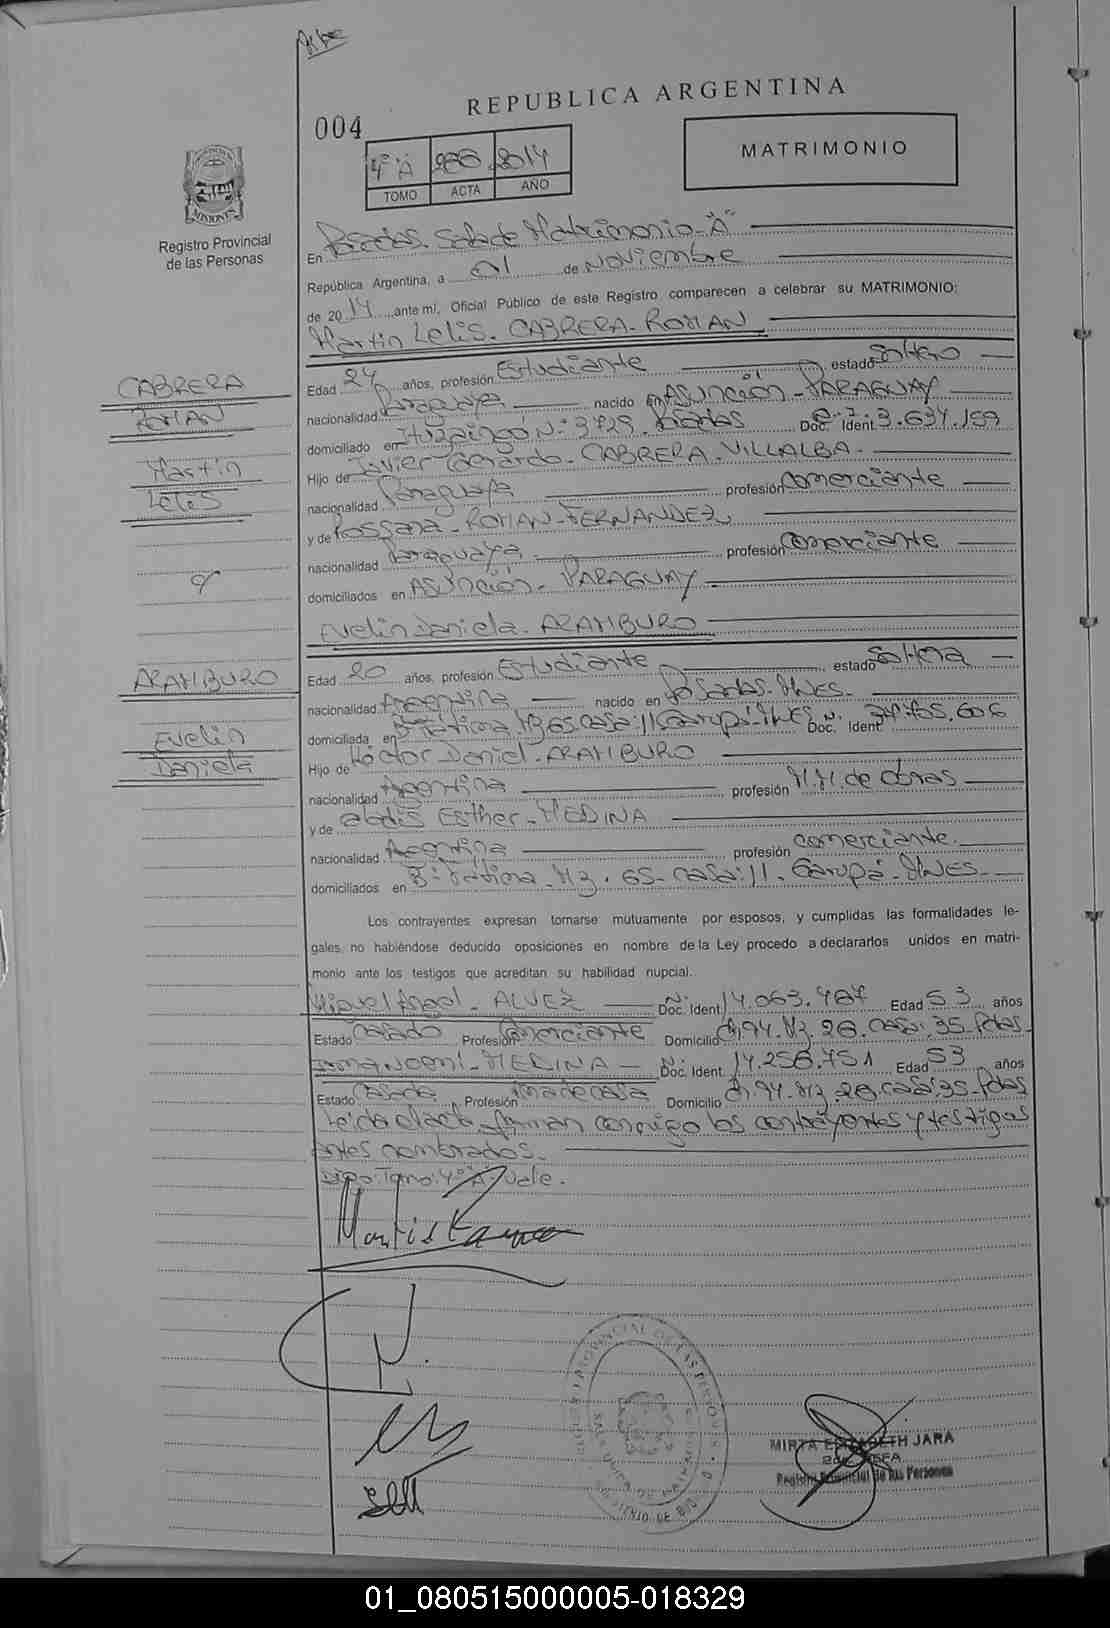 REPUBLICA ARGENTINA
004
4° "A" 266 2014
TOMO ACTA AÑO
MATRIMONIO
MISIONES
Registro Provincial
de las Personas
En Posadas. Sala de Matrimonio-"A"
República Argentina, a 01 de Noviembre
de 2014, ante mí, Oficial Público de este Registro comparecen a celebrar su MATRIMONIO:
Martin Lelis. CABRERA-ROMAN
CABRERA
ROMAN
Martin
Lelis
Edad 24 años, profesión Estudiante estado Soltero
nacionalidad Paraguaya nacido en Asunción-PARAGUAY
domiciliado en Ituzaingó N: 3729. Posadas Doc. Ident. 3.634.159
Hijo de Javier Gerardo-CABRERA-VILLALBA-
nacionalidad Paraguaya profesión Comerciante
y de Rossana-ROMAN-FERNANDEZ
nacionalidad Paraguaya profesión Comerciante
domiciliados en Asunción-PARAGUAY
Evelin Daniela-ARAMBURO
ARAMBURO
Evelin
Daniela
Edad 20 años, profesión Estudiante estado Soltera
nacionalidad Argentina nacido en Posadas-Mnes-
domiciliada en B: Fátima Mz 65 casa: 11 Garupá-Mnes Doc. Ident. 605
Hijo de Héctor Daniel-ARAMBURO
nacionalidad Argentina profesión M.M. de obras
y de Esther-MEDINA
nacionalidad Argentina profesión comerciante.
domiciliados en B: Fátima-Mz. 65-casa: 11. Garupá-Mnes-
Los contrayentes expresan tomarse mutuamente por esposos, y cumplidas las formalidades le-
gales, no habiéndose deducido oposiciones en nombre de la Ley procedo a declararlos unidos en matri-
monio ante los testigos que acreditan su habilidad nupcial.
Miguel Angel-ALVEZ Doc. Ident. 14.063.487 Edad 53 años
Estado Casado Profesión Comerciante Domicilio Ch. 94. Mz. 26. casa: 35-Pdas-
MEDINA Doc. Ident. 14.256.751 Edad 53 años
Estado Casada Profesión Ama de casa Domicilio Ch. 94-Mz 26-casa: 35-Pdas
Leída el acta firman conmigo los contrayentes y testigos
antes nombrados.
Digo: Tomo: 4° "A" Vale.
MIRTA ELIZABETH JARA
2da. JEFA
Registro Provincial de las Personas
01_080515000005-018329